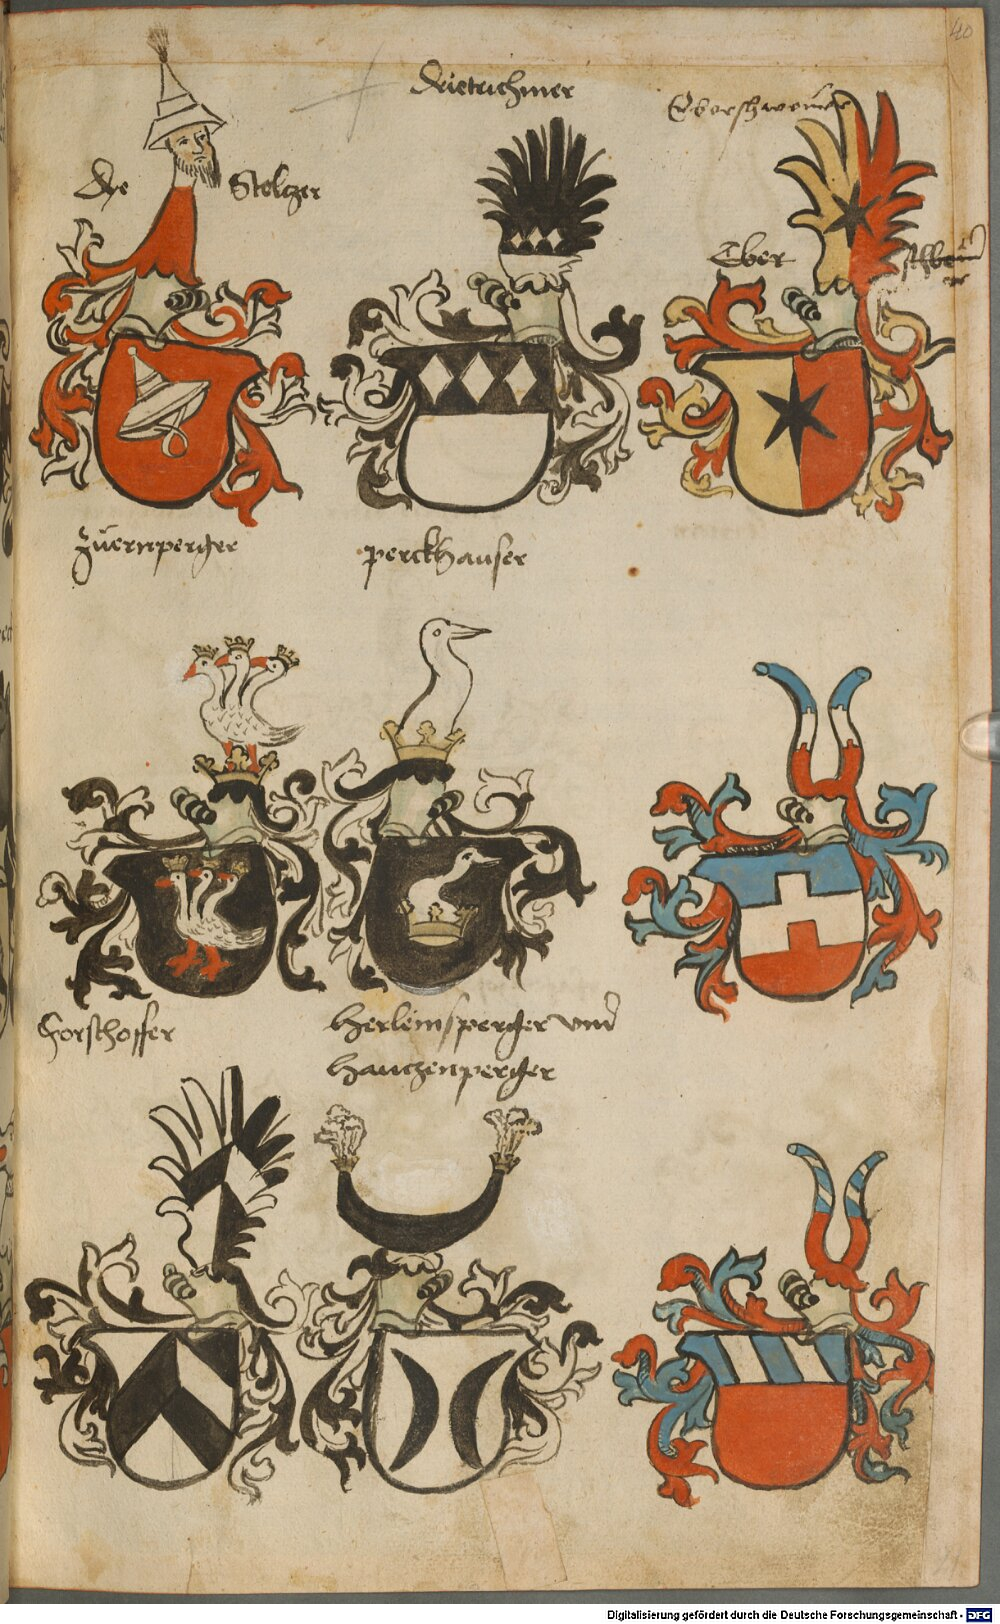 40
Drietrichinger
Eberschwenter
Dye Stolczer
Eber
Zuernperger
perckhauser
Horschoffer
Herleinsperger vnd
Hauczenperger
Digitalisierung gefördert durch die Deutsche Forschungsgemeinschaft - DFG